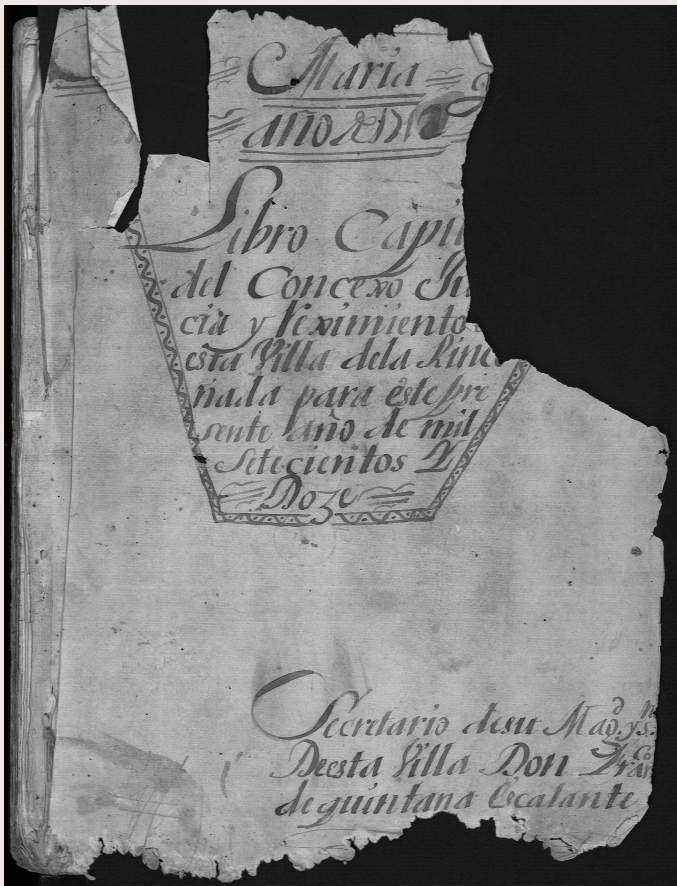 Maria
año de 1712
Libro Capi
del Concexo Ju
cia y reximiento
esta Villa dela Rinco
nada para este pre
sente año de mil
Setecientos Y
Doze
Secretario desu Mad. y s.n
Deesta Villa Don Fran.co
de quintana Escalante